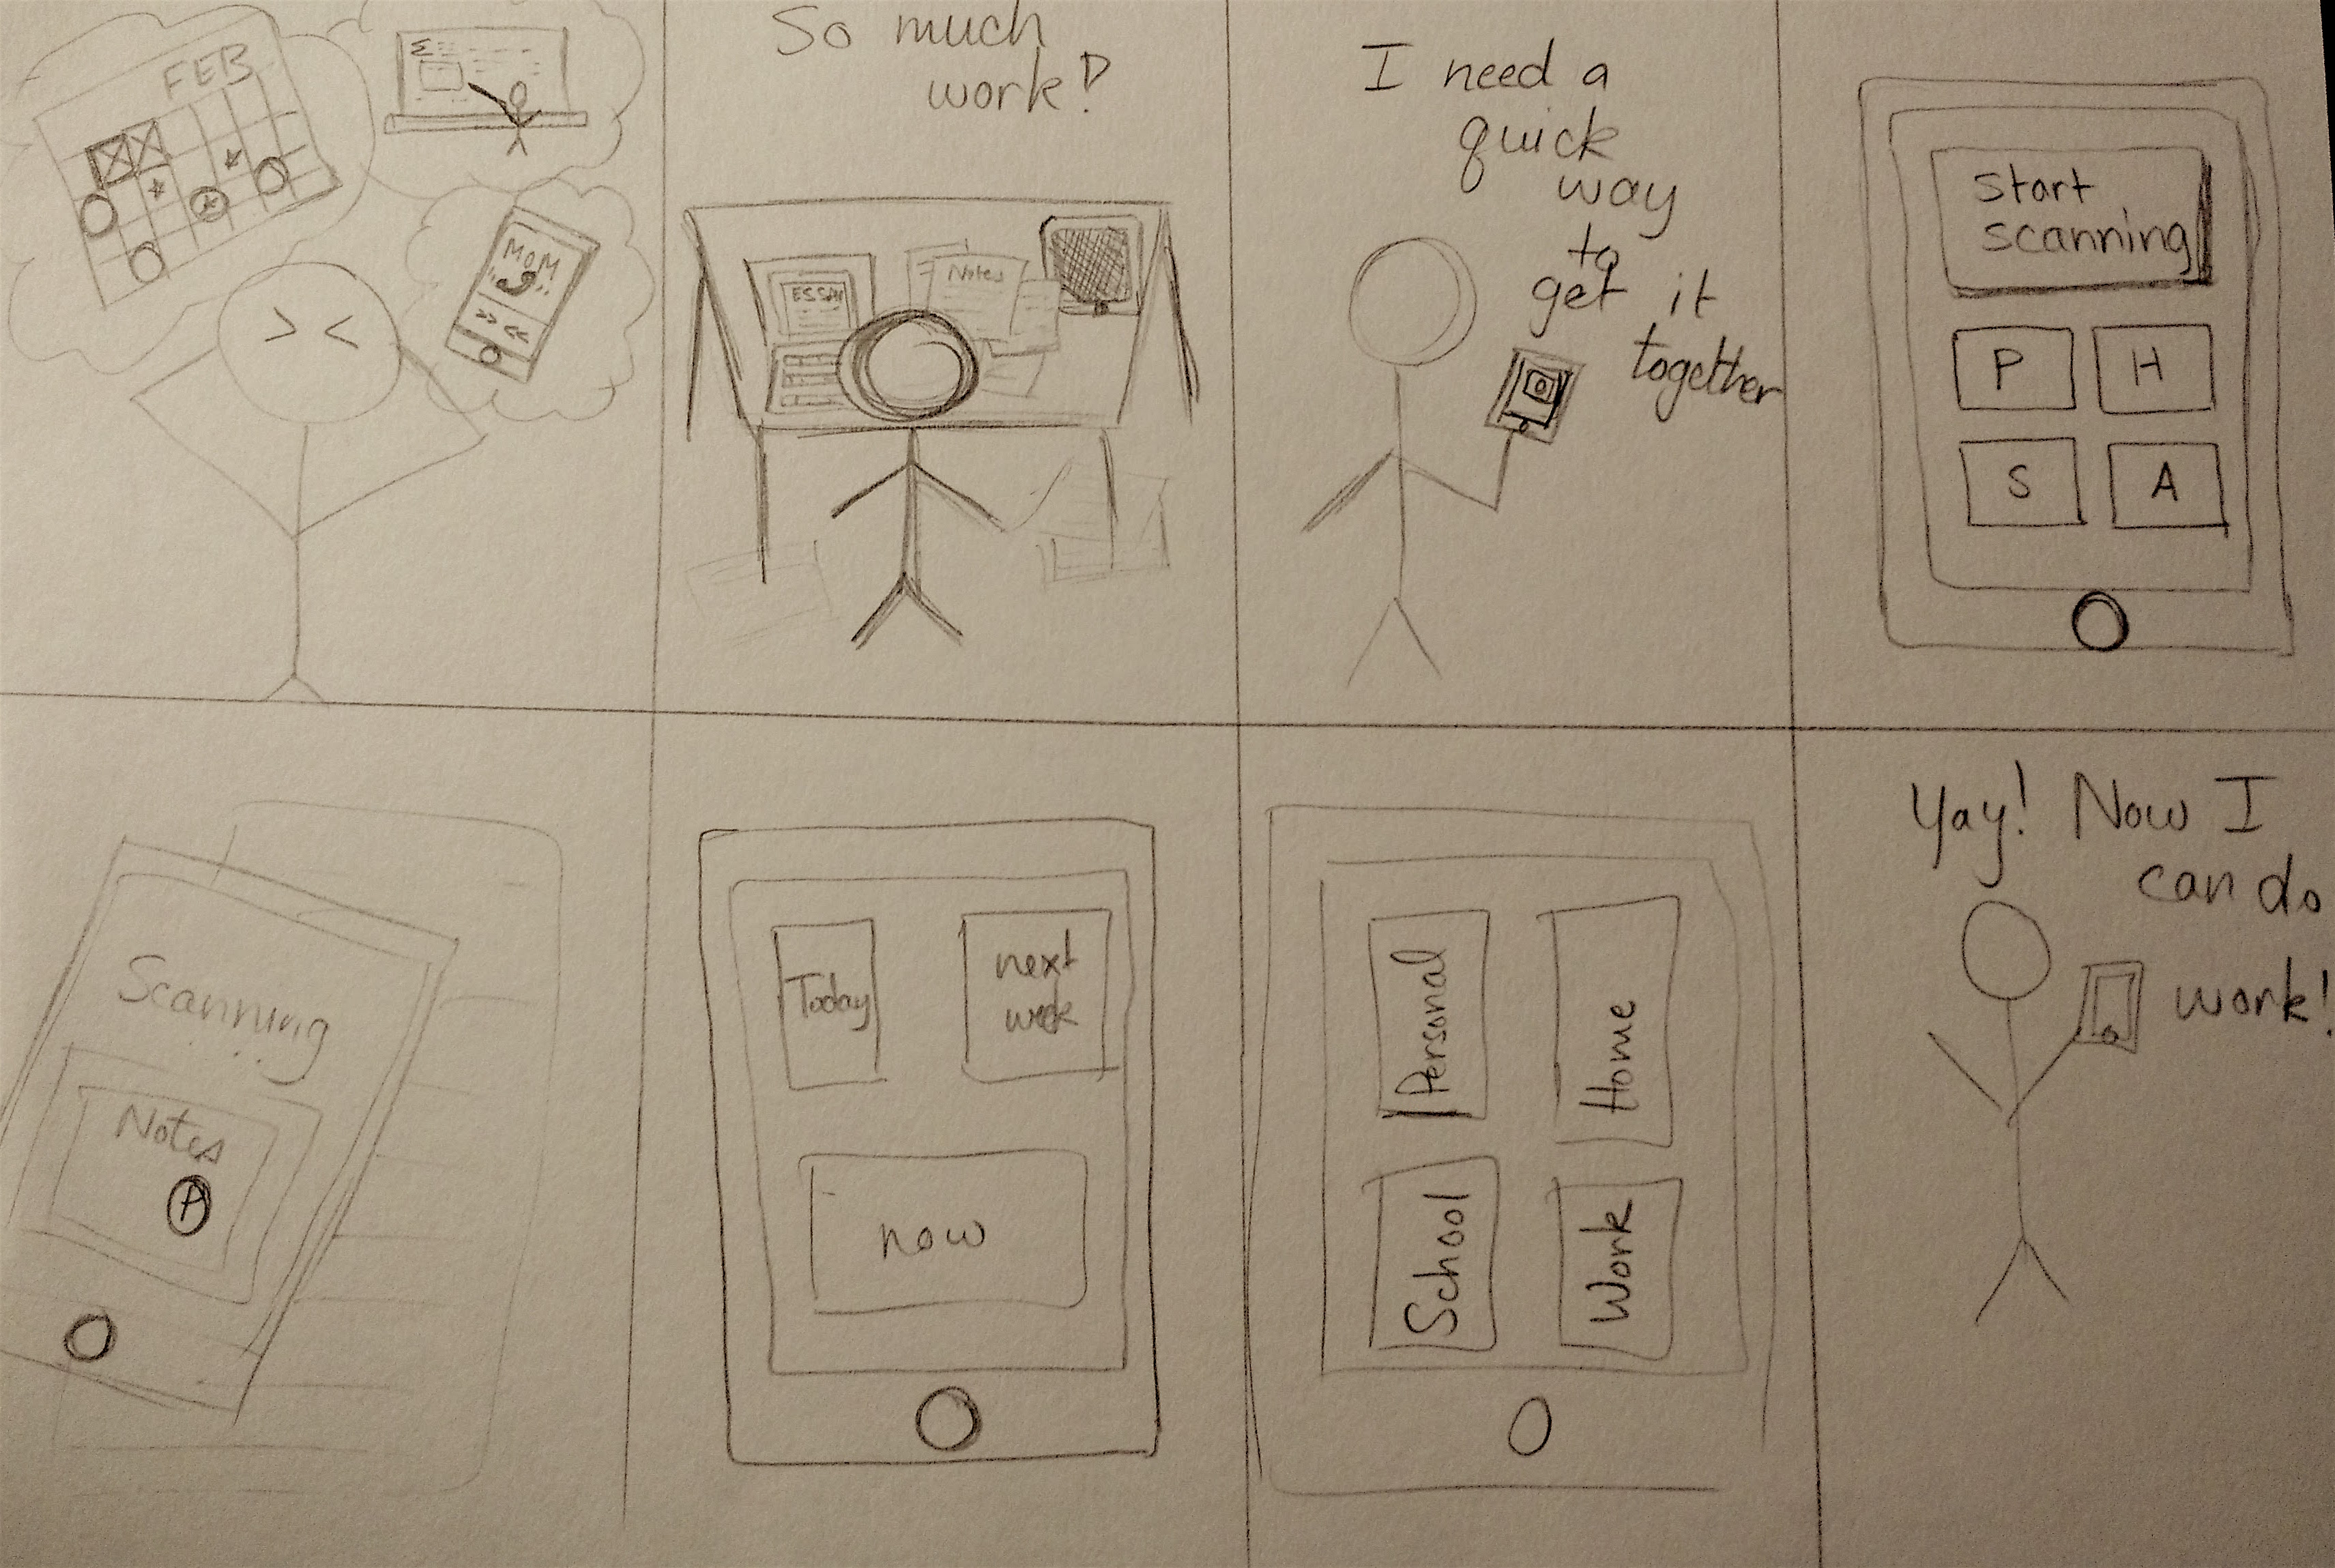 FEB
MOM
So much
work!
ESSAY
Notes
I need a
quick
way
to
get it
together
Start
scanning
P H
S A
Scanning
...
Notes
Today
next
week
now
Personal
Home
School
Work
Yay! Now I
can do
work!